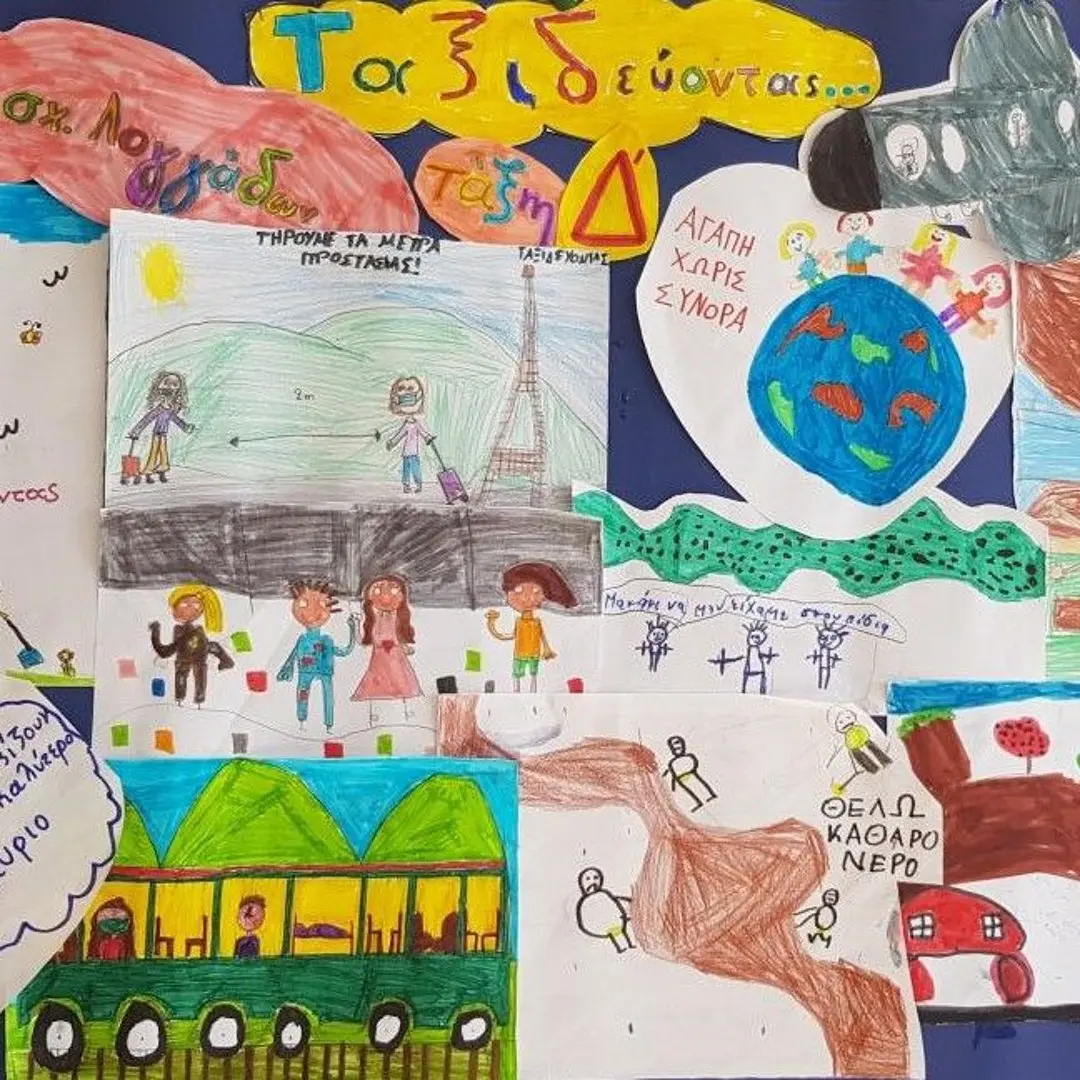 Ταξιδεύοντας...
σχ. Λογγάδων
Τάξη Δ'
ΤΗΡΟΥΜΕ ΤΑ ΜΕΤΡΑ
ΠΡΟΣΤΑΣΙΑΣ!
ΤΑΞΙΔΕΥΟΝΤΑΣ
2m
ΑΓΑΠΗ
ΧΩΡΙΣ
ΣΥΝΟΡΑ
ντας
να μην είχαμε σκουπίδια
καλύτερο
ΘΕΛΩ
ΚΑΘΑΡΟ
ΝΕΡΟ